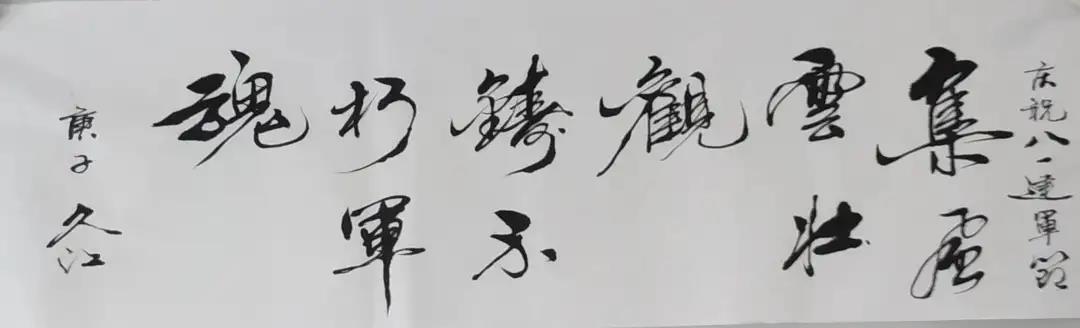 庆祝八一建軍節
集
雲壮
觀
鑄不
朽軍
魂
庚子 久江